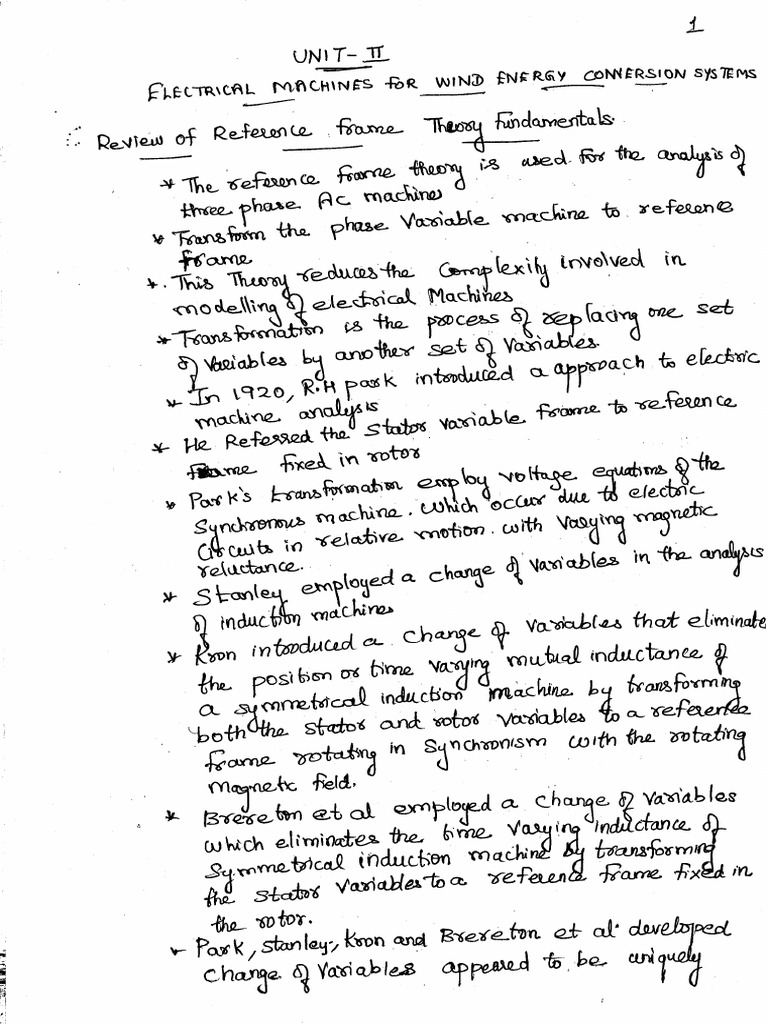 1
UNIT-II
ELECTRICAL MACHINES FOR WIND ENERGY CONVERSION SYSTEMS
Review of Reference frame Theory Fundamentals.
* The reference frame theory is used for the analysis of
three phase AC machines
* Transform the phase Variable machine to reference
frame
* . This Theory reduces the Complexity involved in
modelling of electrical Machines
* Transformation is the process of replacing one set
of Variables by another set of Variables.
* In 1920, R.H park introduced a approach to electric
machine analysis
* He Referred the stator variable frame to reference
frame fixed in rotor
* Park's transformation employ voltage equations of the
Synchronous machine. Which occur due to electric
Circuits in relative motion. with varying magnetic
reluctance.
* Stanley employed a change of variables in the analysis
of induction machines
* Kron introduced a change of variables that eliminate
the position or time varying mutual inductance of
a symmetrical induction machine by transforming
both the stator and rotor variables to a reference
frame rotating in synchronism with the rotating
magnetic field.
* Brereton et al employed a change of variables
which eliminates the time varying inductance of
symmetrical induction machine by transforming
the stator Variables to a reference frame fixed in
the rotor.
* Park, Stanley, Kron and Brereton et al. developed
change of Variables appeared to be uniquely